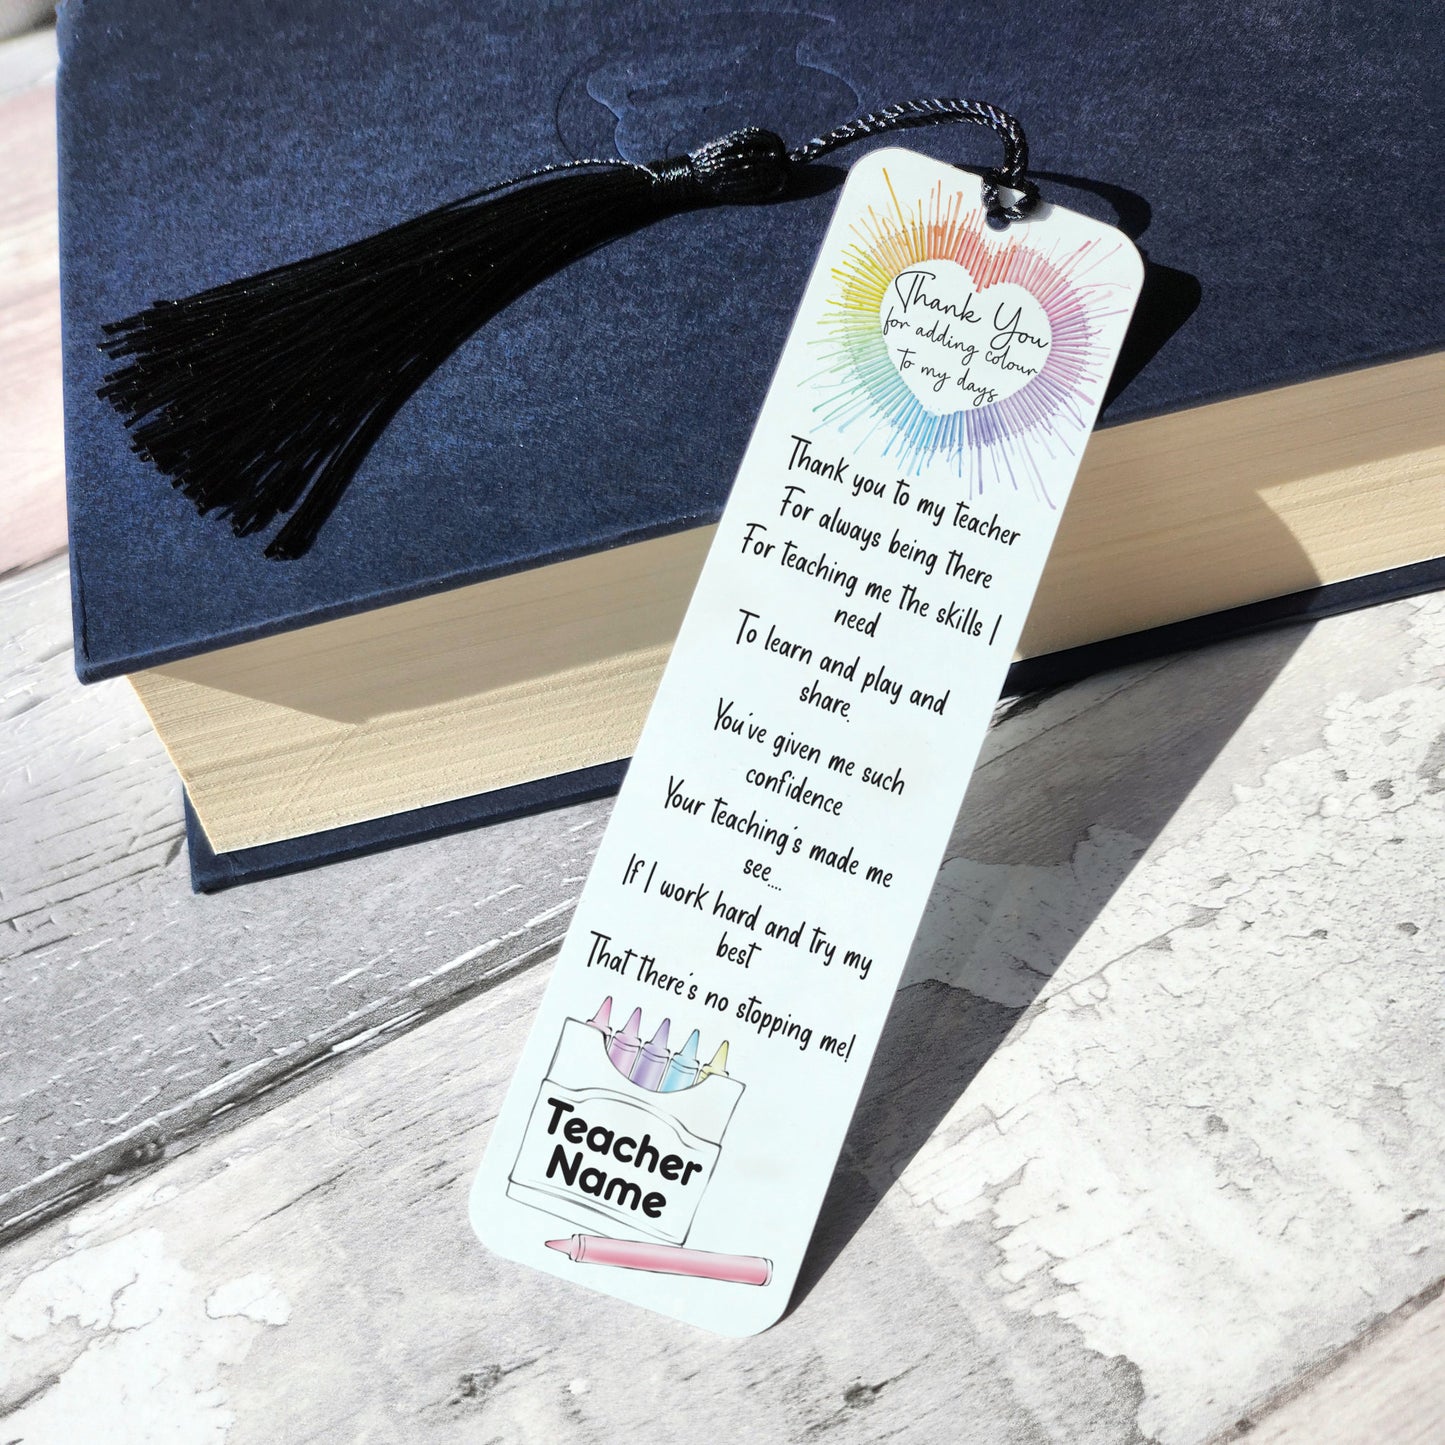 Thank You
for adding colour
to my days
Thank you to my teacher
For always being there
For teaching me the skills I
need
To learn and play and
share.
You've given me such
confidence
Your teaching's made me
see....
If I work hard and try my
best
That there's no stopping me!
Teacher
Name